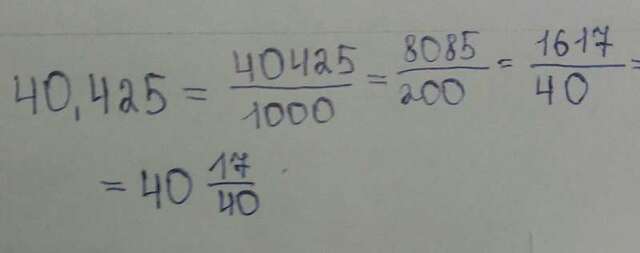 40,425 = 40425/1000 = 8085/200 = 1617/40 =
= 40 17/40